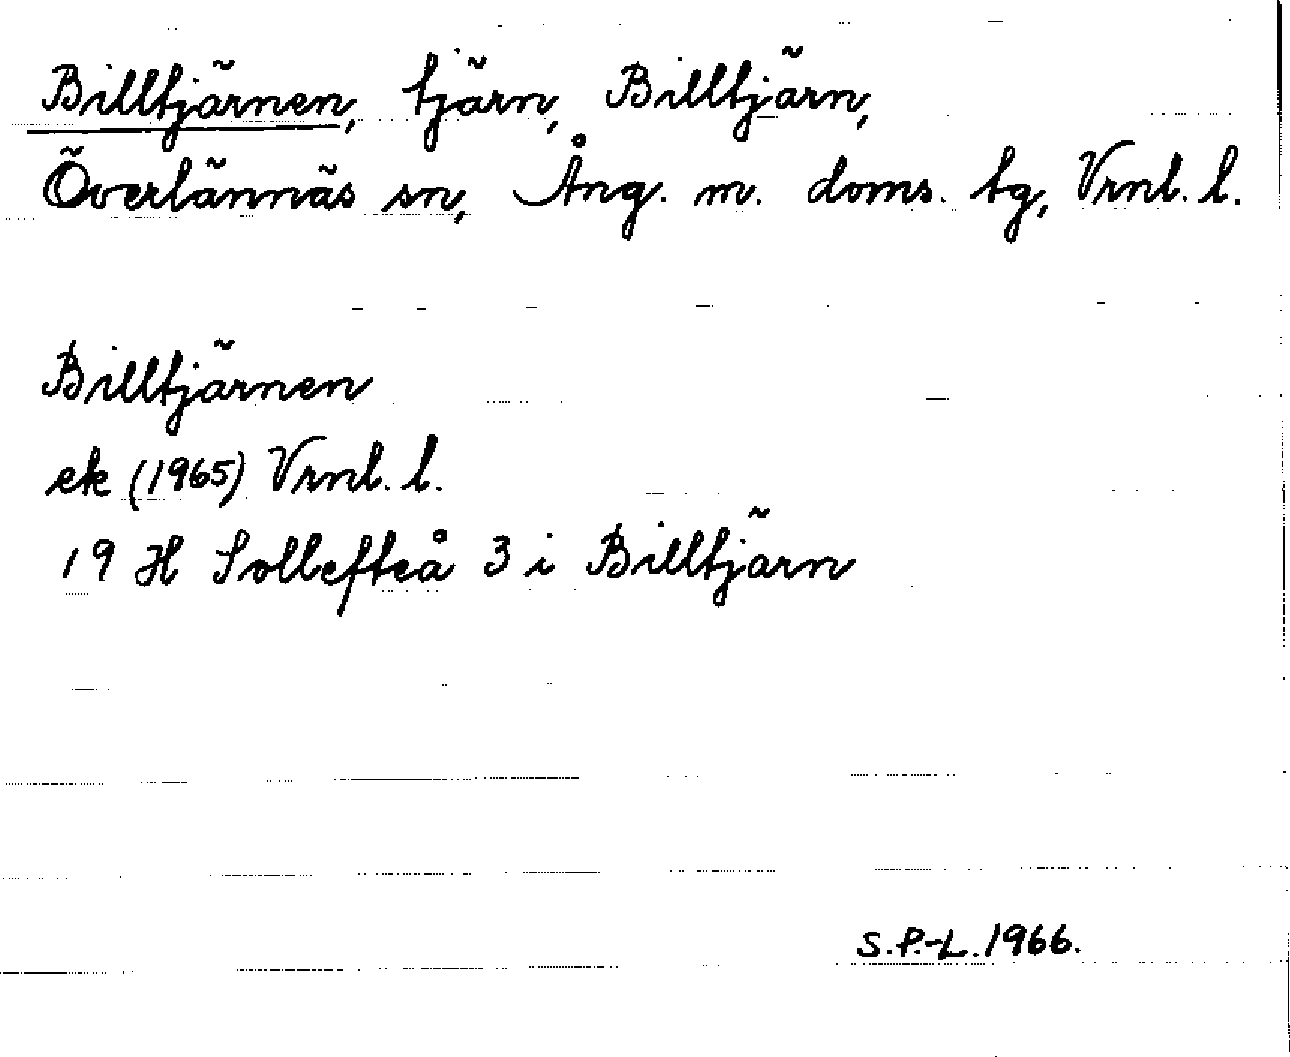 Billtjärnen, tjärn, Billtjärn,
Överlännäs sn, Ång. m. doms. tg, Vrnl. l.
Billtjärnen
ek (1965) Vrnl. l.
19 H Sollefteå 3 i Billtjärn
S.P.-L. 1966.